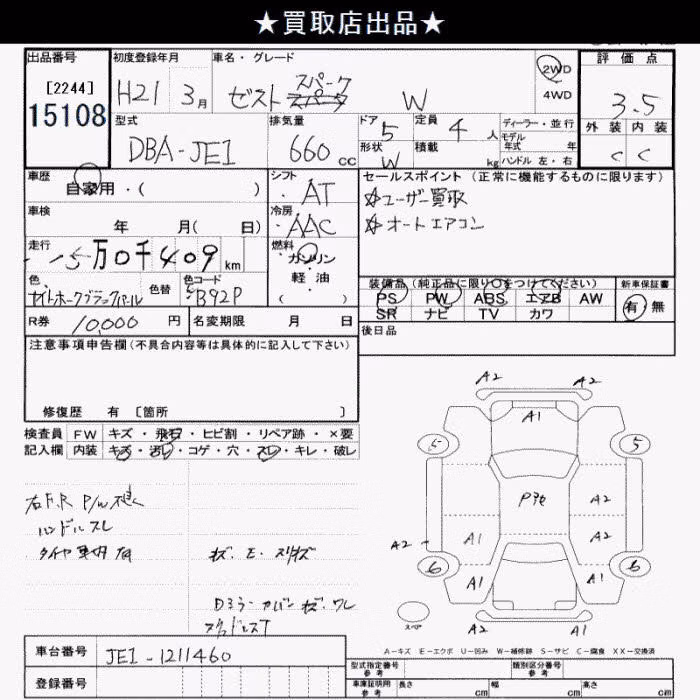 ★買取店出品★
出品番号 初度登録年月 車名・グレード 2WD 評価点
[2244] H21 3月 ゼスト スパーク W 4WD 3.5
15108 型式 排気量 ドア 定員 ディーラー・並行 外装 内装
DBA-JE1 660cc 5 4人 モデル年式 年 C C
形状 W 積載 kg ハンドル 左・右
車歴 シフト セールスポイント(正常に機能するものに限ります)
自家用・( ) AT ☆ユーザー買取
車検 冷房 ☆オートエアコン
年 月( 日) AAC
走行 燃料
5万0千409km ガソリン
色 色替 色コード 軽油 装備品(純正品に限り○をつけてください) 新車保証書
ナイトホークブラックパール B92P ( ) PS PW ABS エアB AW 有・無
R券 10,000円 名変期限 月 日 SR ナビ TV カワ
注意事項申告欄(不具合内容等は具体的に記入して下さい) 後日品
修復歴 有 〔箇所 〕
検査員 FW キズ・飛石・ヒビ割・リペア跡・×要
記入欄 内装 キズ・汚レ・コゲ・穴・スレ・キレ・破レ
A2 A2
A1
5 5
P
A2
A1 A2
A2
6 6
A1 A1
スペア
A2 A1
右F.R P/W
ハンドルスレ
タイヤ
キズ・E・
Dミラーカバー キズ・ワレ
A-キズ E-エクボ U-凹み W-補修跡 S-サビ C-腐食 XX-交換済
車台番号 JE1-1211460
登録番号
型式指定番号 参考 類別区分番号 参考
車庫証明用 参考 長さ cm 幅 cm 高さ cm